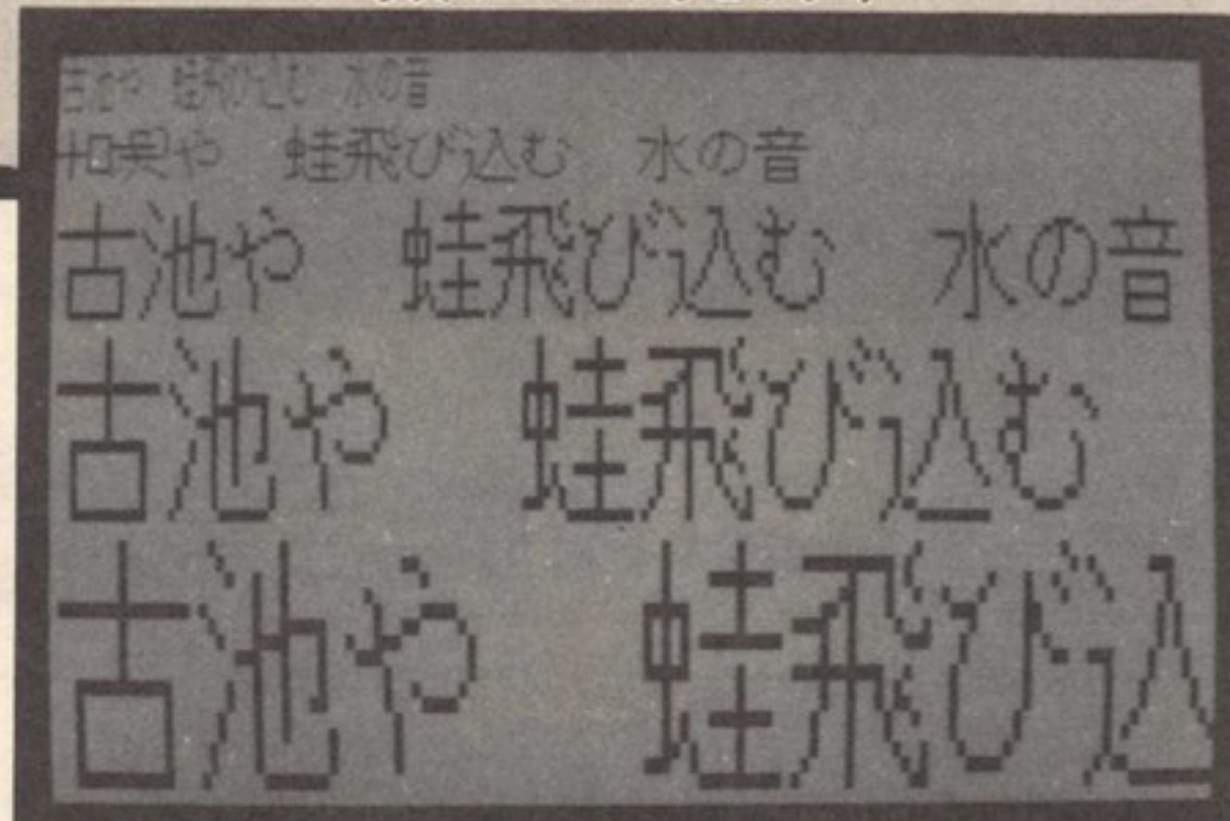 古池や 蛙飛び込む 水の音
や 蛙飛び込む 水の音
古池や 蛙飛び込む 水の音
古池や 蛙飛び込む
古池や 蛙飛び込